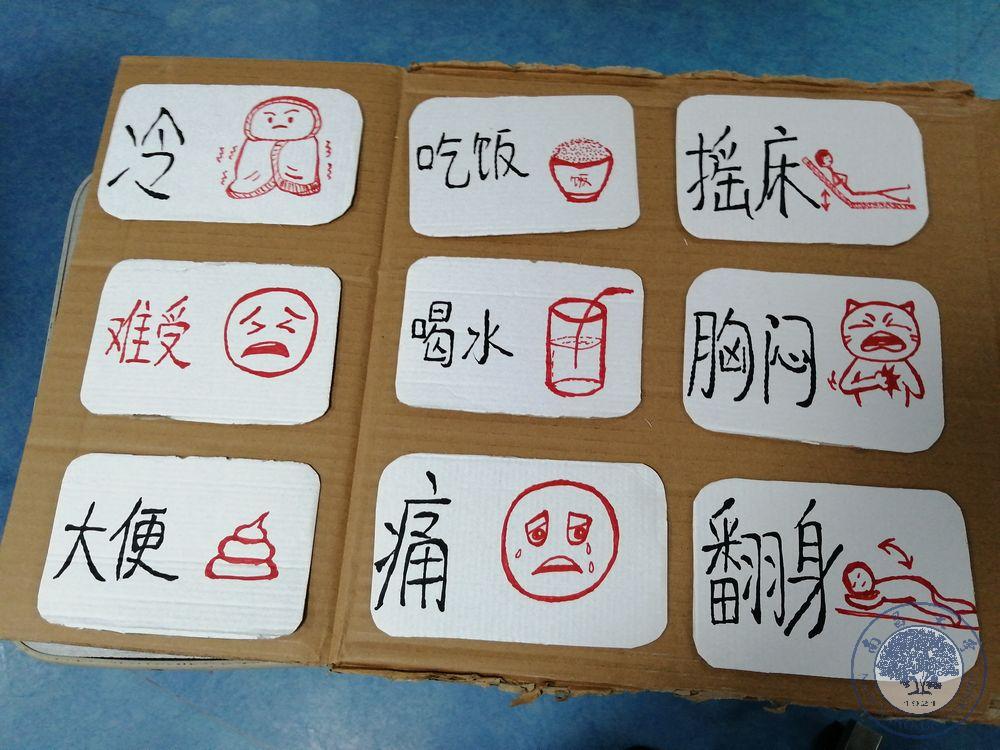 冷
吃饭
饭
摇床
难受
喝水
胸闷
大便
痛
翻身
1921